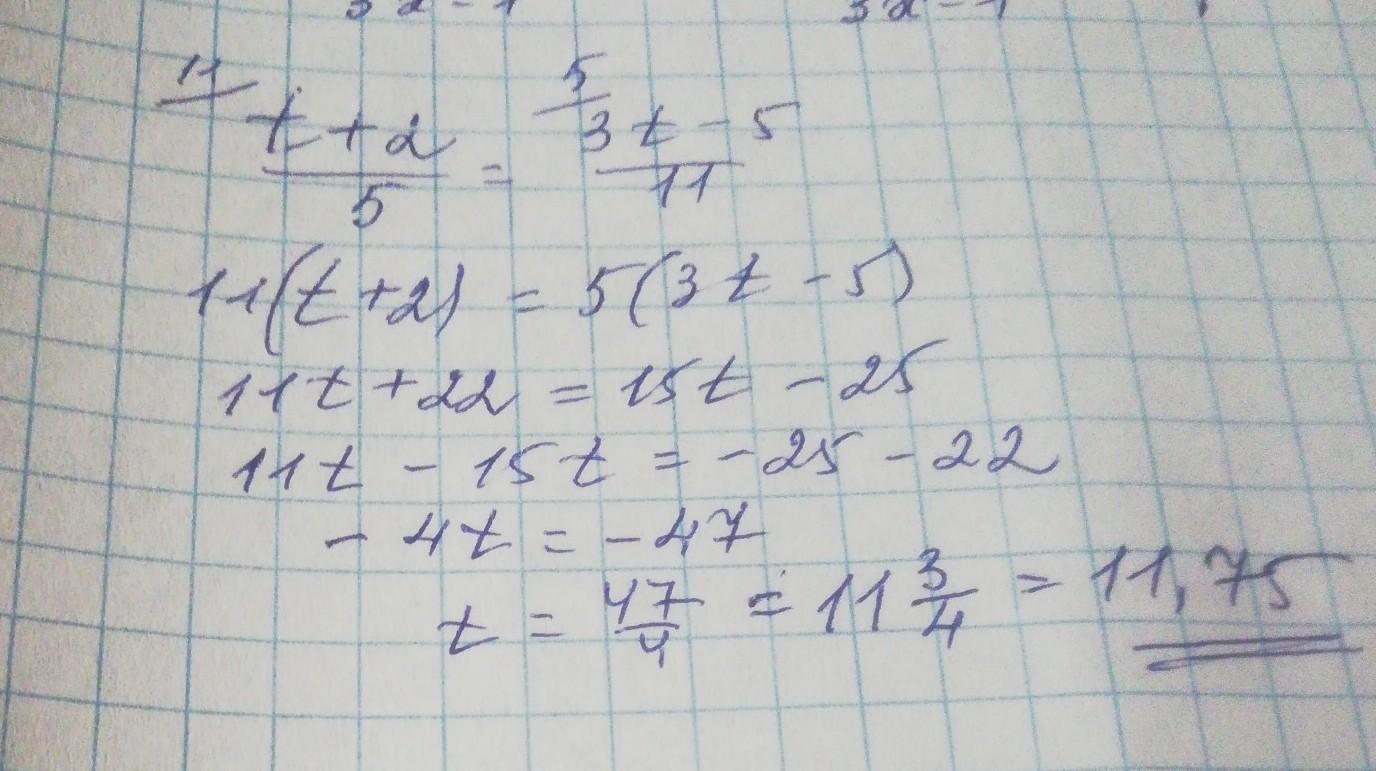 11 5
t + 2 / 5 = 3t - 5 / 11
11(t + 2) = 5(3t - 5)
11t + 22 = 15t - 25
11t - 15t = -25 - 22
- 4t = -47
t = 47/4 = 11 3/4 = 11,75